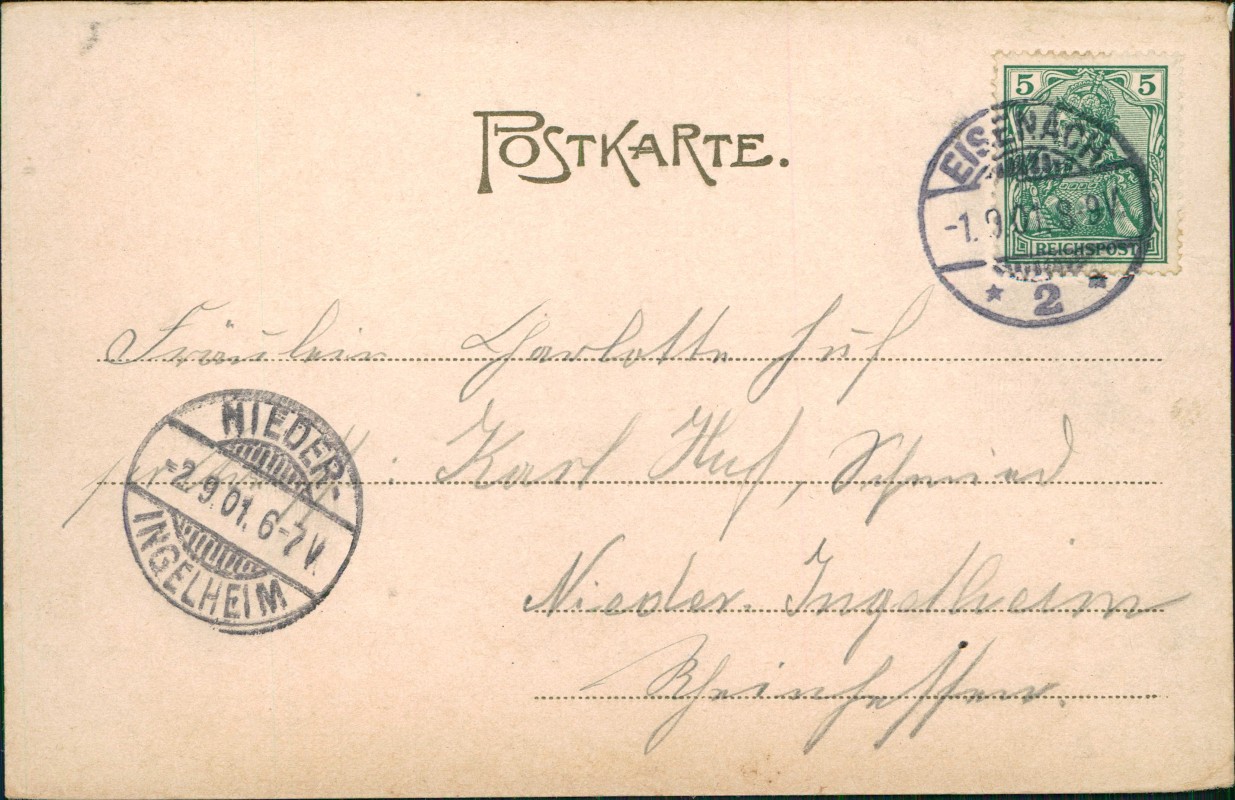 POSTKARTE.
5 5
REICHSPOST
EISENACH
-1.9.01.8-9V.
* 2 *
Fräulein Charlotte Huf
Karl Huf, Schmied
Nieder-Ingelheim
Rheinhessen.
NIEDER-
-2.9.01.6-7V.
INGELHEIM